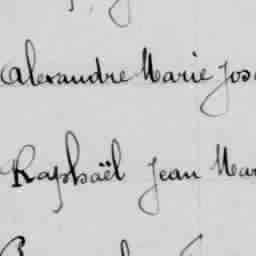 Alexandre Marie Jos
Raphaël Jean Mar